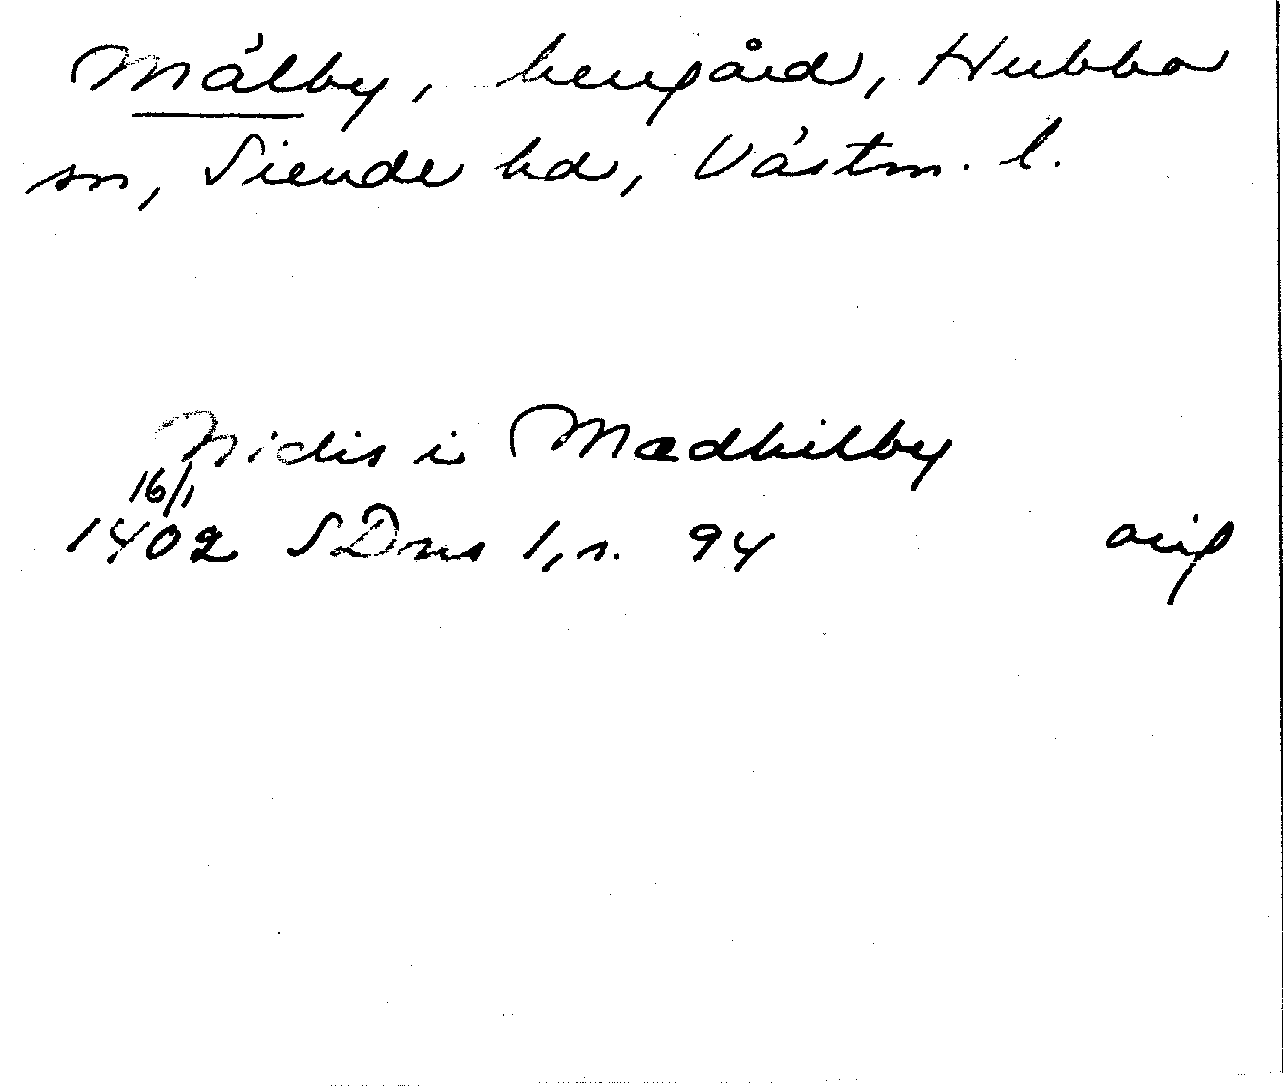 Mälby, herrgård, Hubbo
sn, Siende hd, Västm. l.
Nidis i Madhilby
16/1
1402 SDns 1, s. 94 orig